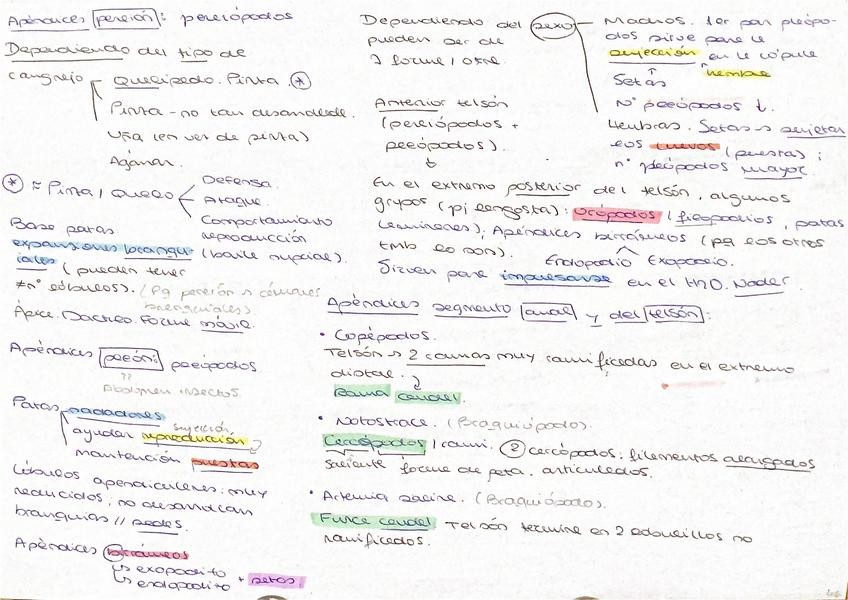 Apéndices pereión: pereiópodos
Dependiendo del tipo de
cangrejo Quelípedo. Pinza. *
Pinza - no tan desarrollada.
Uña (en vez de pinza)
Agarrar.
* ≈ Pinza / quela
Defensa.
Ataque.
Comportamiento
reproducción
(baile nupcial).
Base patas
expansiones branqu-
iales (pueden tener
≠ nº lóbulos). (Pq pereión → cámaras
branquiales).
Ápice. Dactilo. Forma móvil.
Apéndices pleón: pleópodos
??
Abdomen insectos
Patas nadadoras
sujeción,
ayudar reproducción
mantención puestas
Lóbulos apendiculares: muy
reducidos, no desarrollan
branquias //
Apéndices birrámeos
↳ exopodito
↳ endopodito + setas
Dependiendo del sexo
pueden ser de
1 forma / otra.
Machos. 1er par pleópo-
dos sirve para la
sujeción en la cópula
hembra
Setas
Nº pleópodos ↓.
Hembras. Setas → sujetar
los huevos (puesta);
nº pleópodos mayor.
Anterior telsón
(pereiópodos +
pleópodos).
↓
En el extremo posterior del telsón, algunos
grupos (pj langosta): urópodos (filopodios, patas
laminares); Apéndices birrámeos (pq los otros
tmb lo son).
Endopodio Exopodio.
Sirven para impulsarse en el H2O. Nadar.
Apéndices segmento anal y del telsón:
• Copépodos.
Telsón → 2 ramas muy ramificadas en el extremo
distal.
Rama caudal.
• Notostraca. (Braquiópodo).
Cercópodos / rami. 2 cercópodos: filamentos alargados
saliente forma de pata. articulados.
• Artemia salina. (Braquiópodo).
Furca caudal Telsón termina en 2 lobulillos no
ramificados.